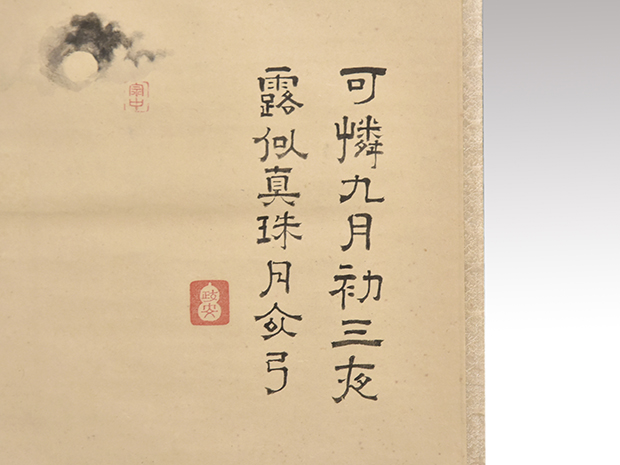 可憐九月初三夜
露似真珠月似弓